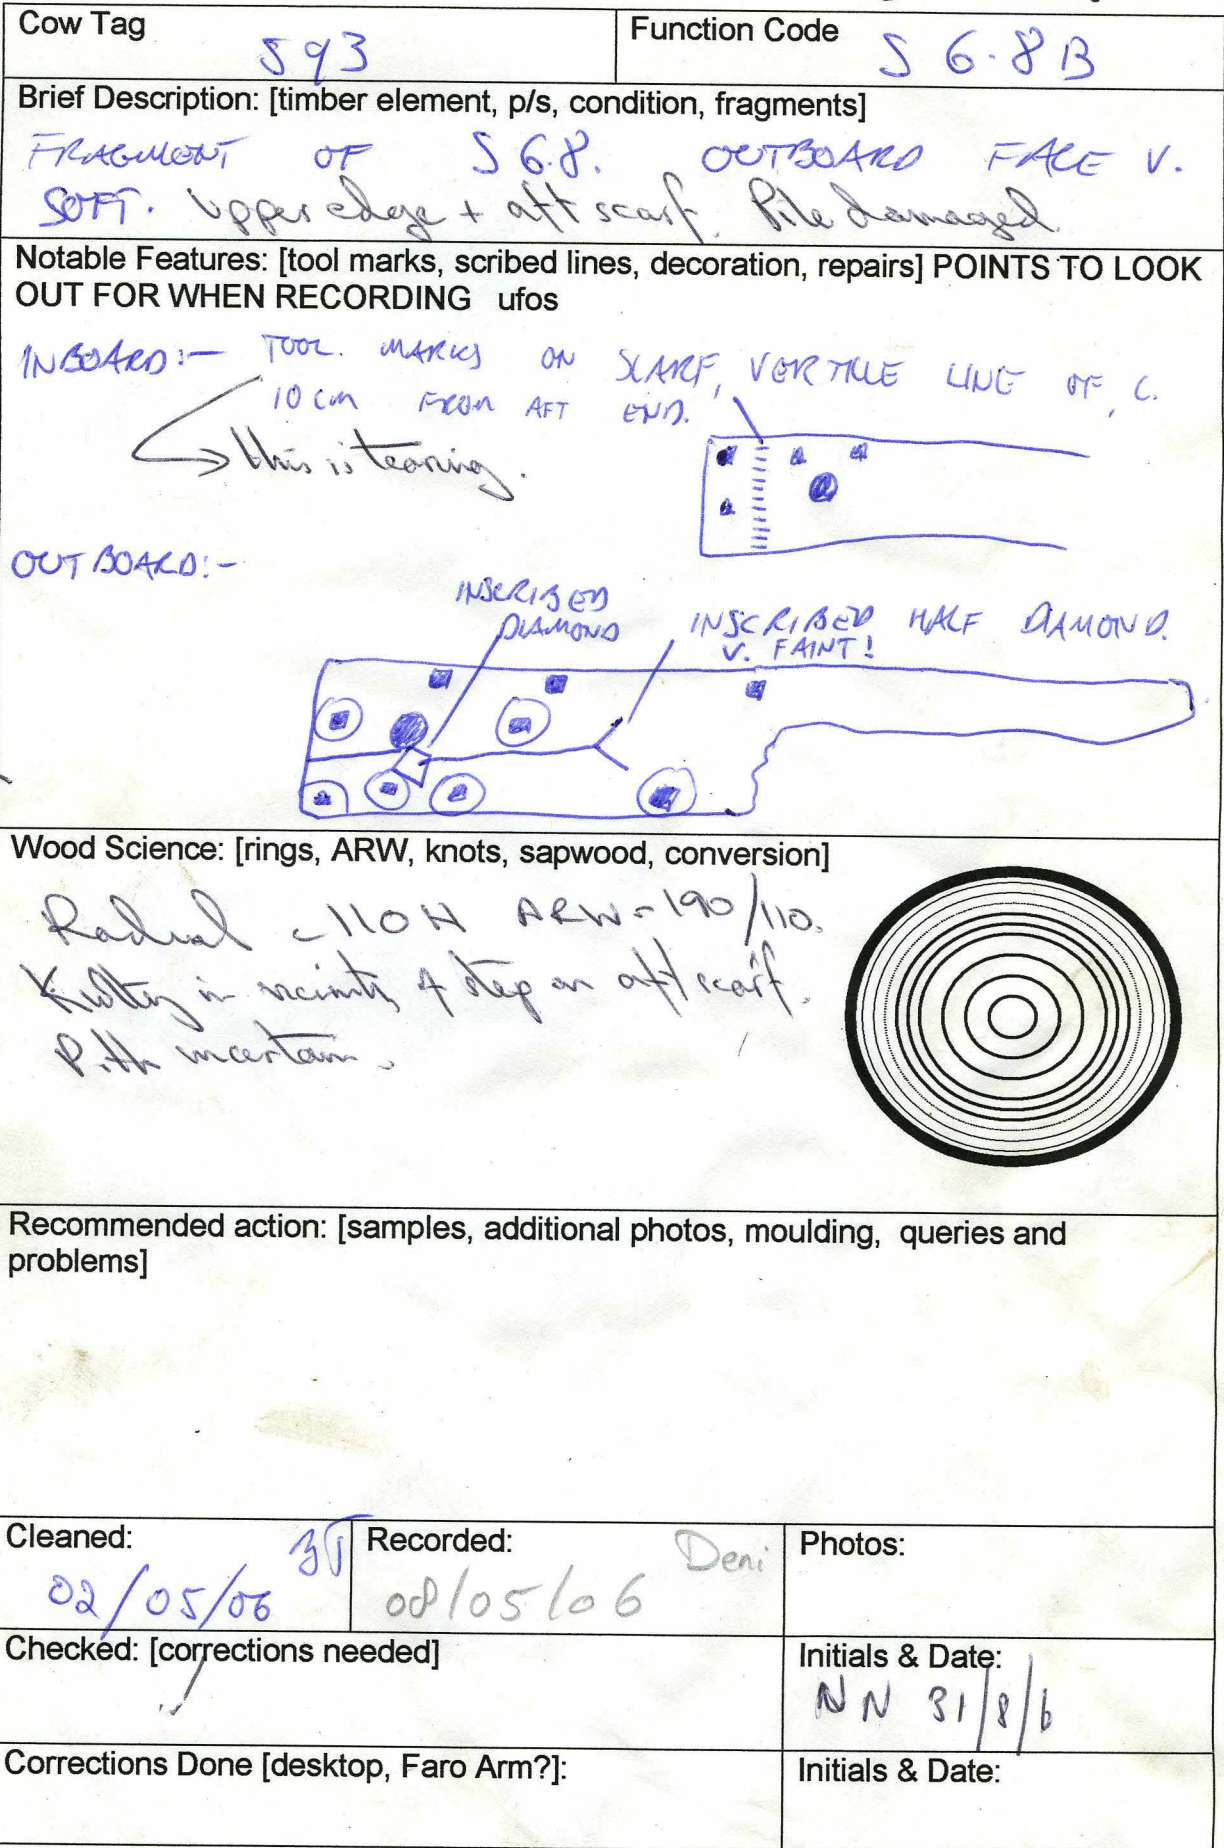 Cow Tag
593
Function Code
S 6.8B
Brief Description: [timber element, p/s, condition, fragments]
FRAGMENT OF S 6.8. OUTBOARD FACE V.
SOFT. Upper edge + aft scarf. Pile damaged
Notable Features: [tool marks, scribed lines, decoration, repairs] POINTS TO LOOK
OUT FOR WHEN RECORDING ufos
INBOARD:- TOOL MARKS ON SCARF, LINE OF, C.
10 cm FROM AFT END.
this is tearing.
OUTBOARD:-
INSCRIBED
DIAMOND
INSCRIBED HALF DIAMOND.
V. FAINT!
Wood Science: [rings, ARW, knots, sapwood, conversion]
Radial 110 H ARW = 190/110.
Knotty in vicinity of step on aft scarf.
Pith uncertain.
Recommended action: [samples, additional photos, moulding, queries and
problems]
Cleaned:
02/05/06
Recorded:
Deni
08/05/06
Photos:
Checked: [corrections needed]
Initials & Date:
NN 31/8/6
Corrections Done [desktop, Faro Arm?]:
Initials & Date: